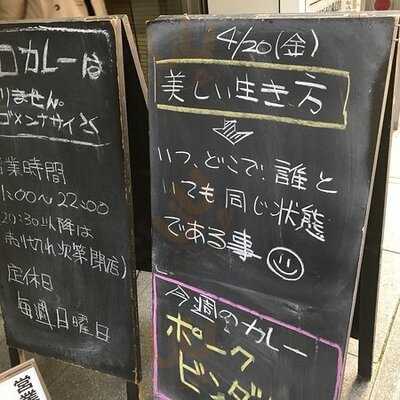 カレーは
りません。
ゴメンナサイ
営業時間
1:00〜22:00
20:30以降は
売り切れ次第閉店)
定休日
毎週日曜日
4/20(金)
美しい生き方
いつ、どこで、誰と
いても同じ状態
である事
今週のカレー
ポーク
ビンダ
営業